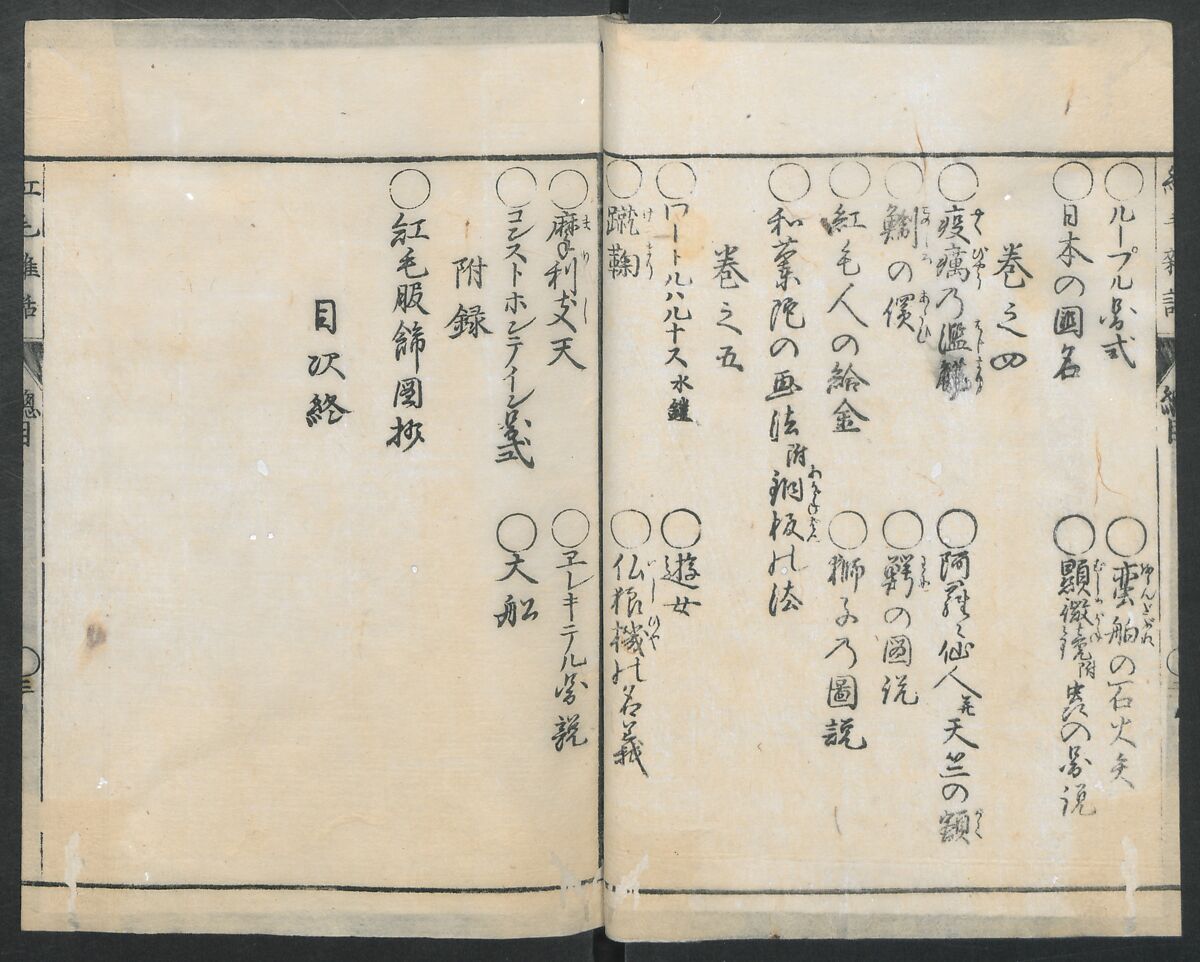 紅毛雑話 総目
○ルーブル図式 ○蛮舶の石火矢
○日本の国名 ○顕微鏡附虫の図説
巻之四
○疫癘乃濫觴 ○阿羅々仙人並天竺の額
○鰶の價 ○鰐の図説
○紅毛人の給金 ○獅子乃圖説
○和蘭陀の画法附銅板の法
巻之五
○ワートルハルナス水鏡 ○遊女
○蹴鞠 ○仏狼機の名義
○摩利支天 ○ヱレキテル図説
○コンストホンテイン図式 ○大船
附録
○紅毛服飾図抄
目次終
紅毛雑話 總目 ○三